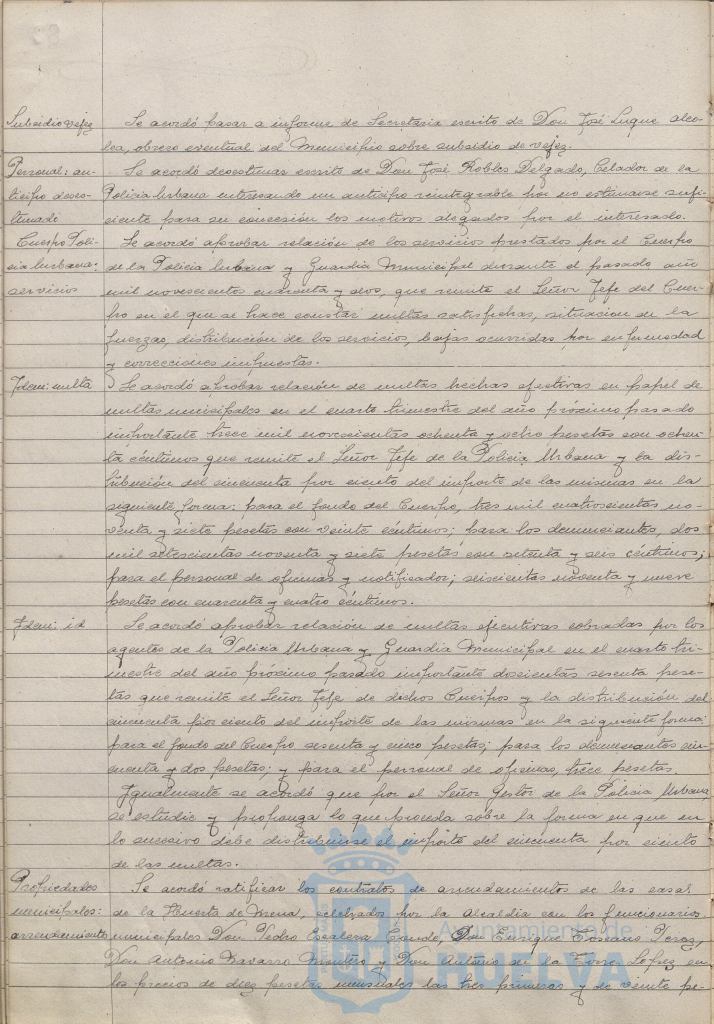 Subsidio vejez
Se acordó pasar a informe de Secretaria escrito de Don José Luque Alco-
lea, obrero eventual del Municipio sobre subsidio de vejez.
Personal: an-
ticipo deses-
timado
Se acordó desestimar escrito de Don José Robles Delgado, Celador de la
Policia Urbana interesando un anticipo reintegrable por no estimarse sufi-
ciente para su concesión los motivos alegados por el interesado.
Cuerpo Poli-
cia Urbana:
servicios
Se acordó aprobar relación de los servicios prestados por el Cuerpo
de la Policia Urbana y Guardia Municipal durante el pasado año
mil novecientos cuarenta y dos, que remite el Señor Jefe del Cuer-
po en el que se hace constar multas satisfechas, situación de la
fuerzas, distribución de los servicios, bajas ocurridas por enfermedad
y correcciones impuestas.
Idem: multa
Se acordó aprobar relación de multas hechas efectivas en papel de
multas municipales en el cuarto trimestre del año próximo pasado
importante trece mil novecientas ochenta y ocho pesetas con ochen-
ta céntimos que remite el Señor Jefe de la Policia Urbana y la dis-
tribución del cincuenta por ciento del importe de las mismas en la
siguiente forma: para el fondo del Cuerpo, tres mil cuatrocientas no-
venta y siete pesetas con veinte céntimos; para los denunciantes, dos
mil setecientas noventa y siete pesetas con setenta y seis céntimos;
para el personal de oficinas y notificador; seiscientas noventa y nueve
pesetas con cuarenta y cuatro céntimos.
Idem: id
Se acordó aprobar relación de multas ejecutivas cobradas por los
agentes de la Policia Urbana y Guardia Municipal en el cuarto tri-
mestre del año próximo pasado importante doscientas sesenta pese-
tas que remite el Señor Jefe de dichos Cuerpos y la distribución del
cincuenta por ciento del importe de las mismas en la siguiente forma:
para el fondo del Cuerpo sesenta y cinco pesetas; para los denunciantes cin-
cuenta y dos pesetas; y para el personal de oficinas, trece pesetas.
Igualmente se acordó que por el Señor Gestor de la Policia Urbana,
se estudie y proponga lo que proceda sobre la forma en que en
lo sucesivo debe distribuirse el importe del cincuenta por ciento
de las multas.
Propiedades
municipales:
arrendamiento
Se acordó ratificar los contratos de arrendamientos de las casas
de la Huerta de Mena, celebrados por la Alcaldia con los funcionarios
municipales Don Pedro Escalera Conde, Don Enrique Toscano Perez,
Don Antonio Navarro Montero y Don Antonio de la Torre Lopez en
los precios de diez pesetas mensuales las tres primeras y de veinte pe-
Ayuntamiento de
HUELVA